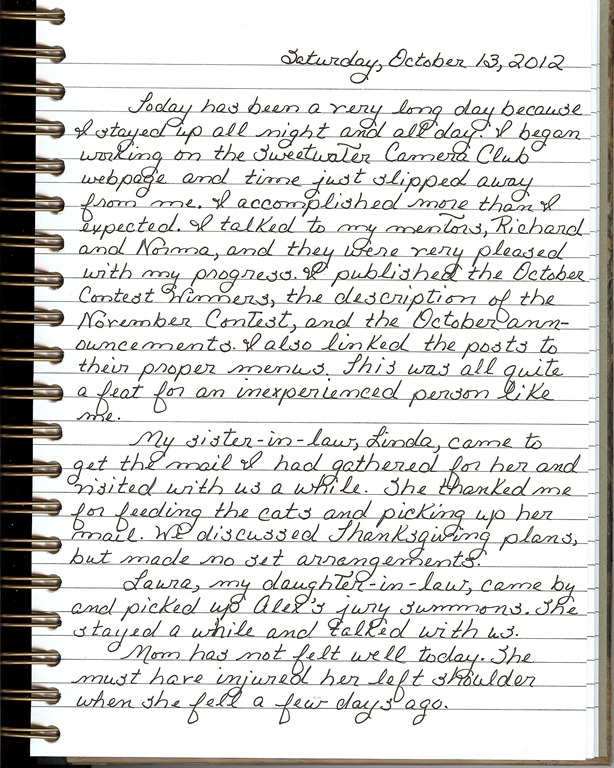 Saturday, October 13, 2012
Today has been a very long day because
I stayed up all night and all day. I began
working on the Sweetwater Camera Club
webpage and time just slipped away
from me. I accomplished more than I
expected. I talked to my mentors, Richard
and Norma, and they were very pleased
with my progress. I published the October
Contest Winners, the description of the
November Contest, and the October ann-
ouncements. I also linked the posts to
their proper menus. This was all quite
a feat for an inexperienced person like
me.
My sister-in-law, Linda, came to
get the mail I had gathered for her and
visited with us a while. She thanked me
for feeding the cats and picking up her
mail. We discussed Thanksgiving plans,
but made no set arrangements.
Laura, my daughter-in-law, came by
and picked up Alex's jury summons. She
stayed a while and talked with us.
Mom has not felt well today. She
must have injured her left shoulder
when she fell a few days ago.